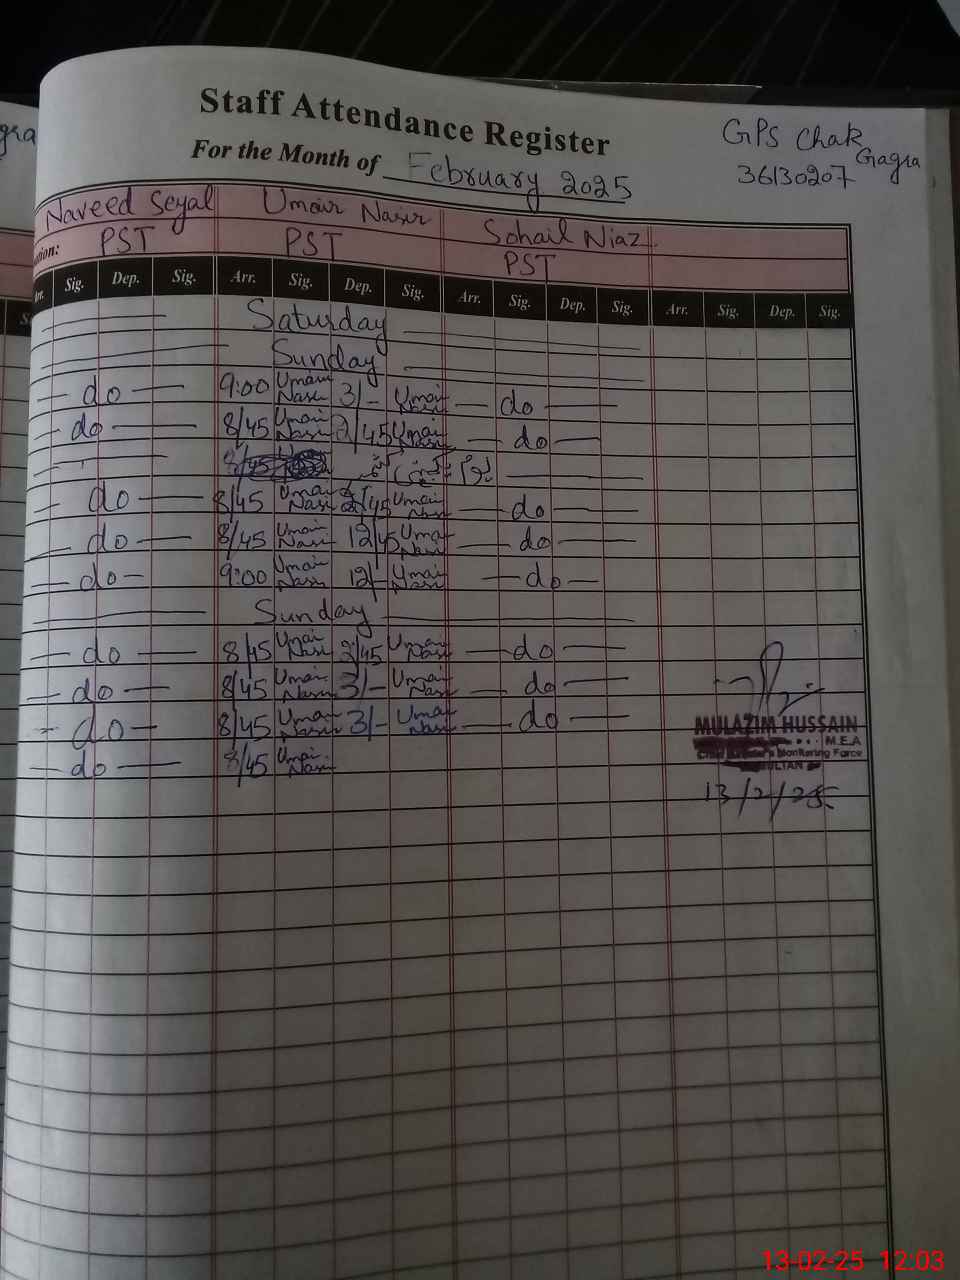 Staff Attendance Register
For the Month of February 2025
GPS Chak Gagra
36130207
gra
Naveed Seyal Umair Nasir Sohail Niaz
PST PST PST
Sig. Dep. Sig. Arr. Sig. Dep. Sig. Arr. Sig. Dep. Sig. Arr. Sig. Dep. Sig.
Saturday
Sunday
do 9:00 Umair Nasir 3/- Umair Nasir do
do 8/45 Umair Nasir 2/45 Umair Nasir do
8/45
do 8/45 Umair Nasir 2/45 Umair Nasir do
do 8/45 Umair Nasir 12/45 Umair Nasir do
do 9:00 Umair Nasir 12/- Umair Nasir do
Sunday
do 8/45 Umair Nasir 2/45 Umair Nasir do
do 8/45 Umair Nasir 3/- Umair Nasir do
do 8/45 Umair Nasir 3/- Umair Nasir do
do 8/45 Umair Nasir
MULAZIM HUSSAIN
M.E.A
Monitoring Force
MULTAN
13/2/25
13-02-25 12:03